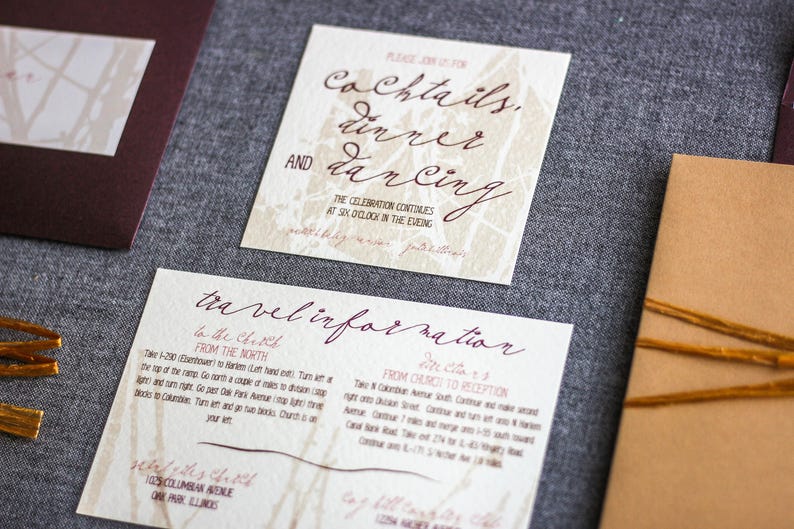 PLEASE JOIN US FOR
cocktails,
dinner
AND dancing
THE CELEBRATION CONTINUES
AT SIX O'CLOCK IN THE EVEING
travel information
to the Church
FROM THE NORTH
Take I-290 (Eisenhower) to Harlem (Left hand exit). Turn left at
the top of the ramp. Go North a couple of miles to division (stop
light) and turn right. Go past Oak Park Avenue (stop light) three
blocks to Columbian. Turn left and go two blocks. Church is on
your left.
directions
FROM CHURCH TO RECEPTION
Take N Columbian Avenue South. Continue and make second
right onto Division Street. Continue and turn left onto N Harlem
Avenue. Continue 7 miles and merge onto I-55 south toward
Canal Bank Road. Take exit 274 for IL-83/Kingery Road.
Continue onto IL-171. S/Archer Ave 1.8 miles.
saint giles Church
1025 COLUMBIAN AVENUE
OAK PARK, ILLINOIS
cog hill Country Club
12294 ARCHER AVENUE